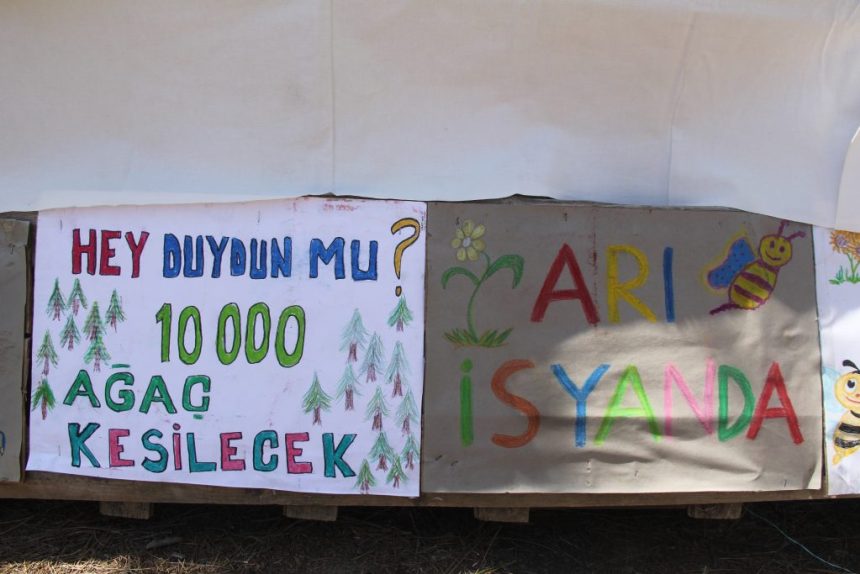 HEY DUYDUN MU?
10 000
AĞAÇ
KESİLECEK
ARI
İSYANDA